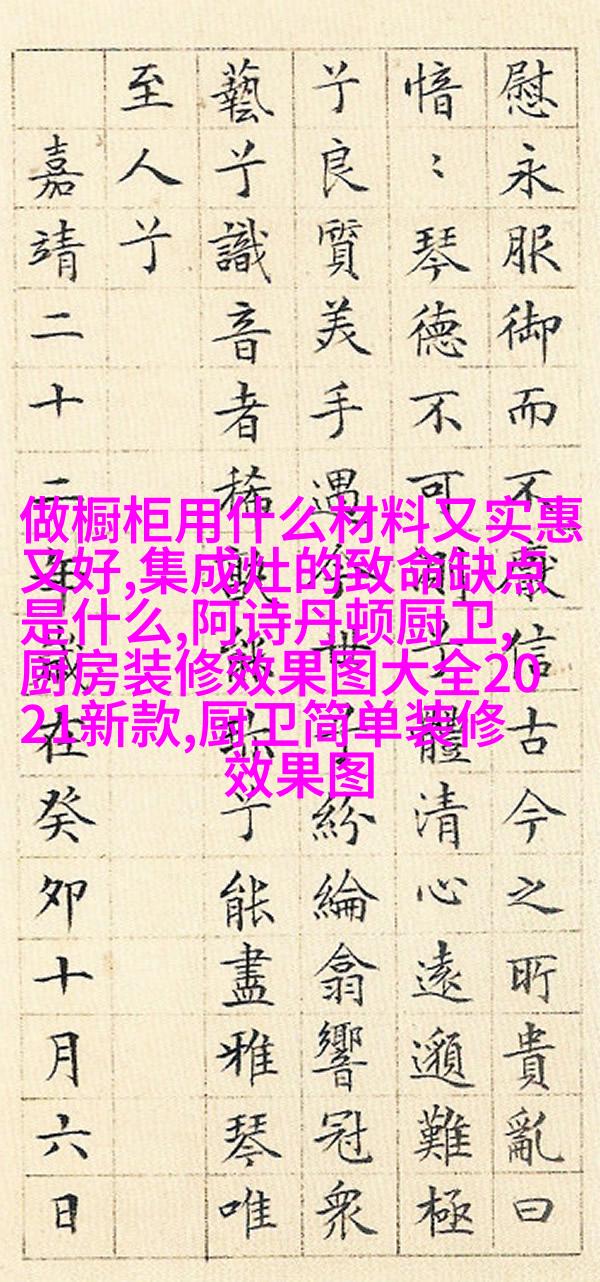 慰永服御而不厭信古今之所貴亂曰
愔〻琴德不可測兮體清心遠邈難極
兮良質美手遇今世兮紛綸翕響冠眾
藝兮識音者稀孰能珍兮能盡雅琴唯
至人兮
嘉靖二十二年歲在癸卯十月六日
做橱柜用什么材料又实惠
又好,集成灶的致命缺点
是什么,阿诗丹顿厨卫,
厨房装修效果图大全20
21新款,厨卫简单装修
效果图